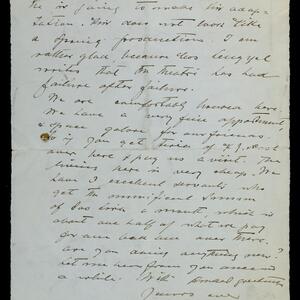 he is going to make his adap-
tation. This does not look like
a Spring production. I am
rather glad, because
writes that the Theatre has had
failure after failure.
We are comfortably housed here
We have a very fine appartment
space galore for our friends.
So if you get tired of N.Y. just
over here & pay us a visit. The
living here is very cheap. We
have 2 excellent servants who
get the munificent sum
of a month, which is
about one half of what we pay
for one back over there.
Are you doing anything new?
Let me hear from you once in
a while. With
Yours ever